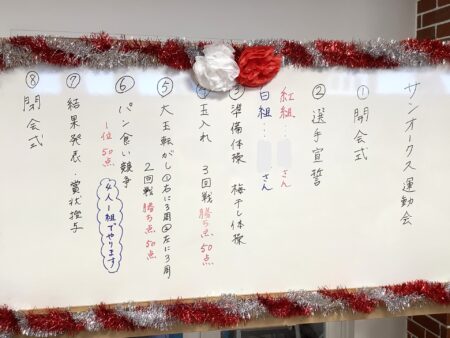 サンオークス運動会
① 開会式
② 選手宣誓
紅組… さん
白組… さん
③ 準備体操 梅干し体操
④ 玉入れ 3回戦 勝ち点 50点
⑤ 大玉転がし ①右に3周 ②左に3周
2回戦 勝ち点 50点
⑥ パン食い競争
1位 50点 4人1組でやります
⑦ 結果発表・賞状授与
⑧ 閉会式